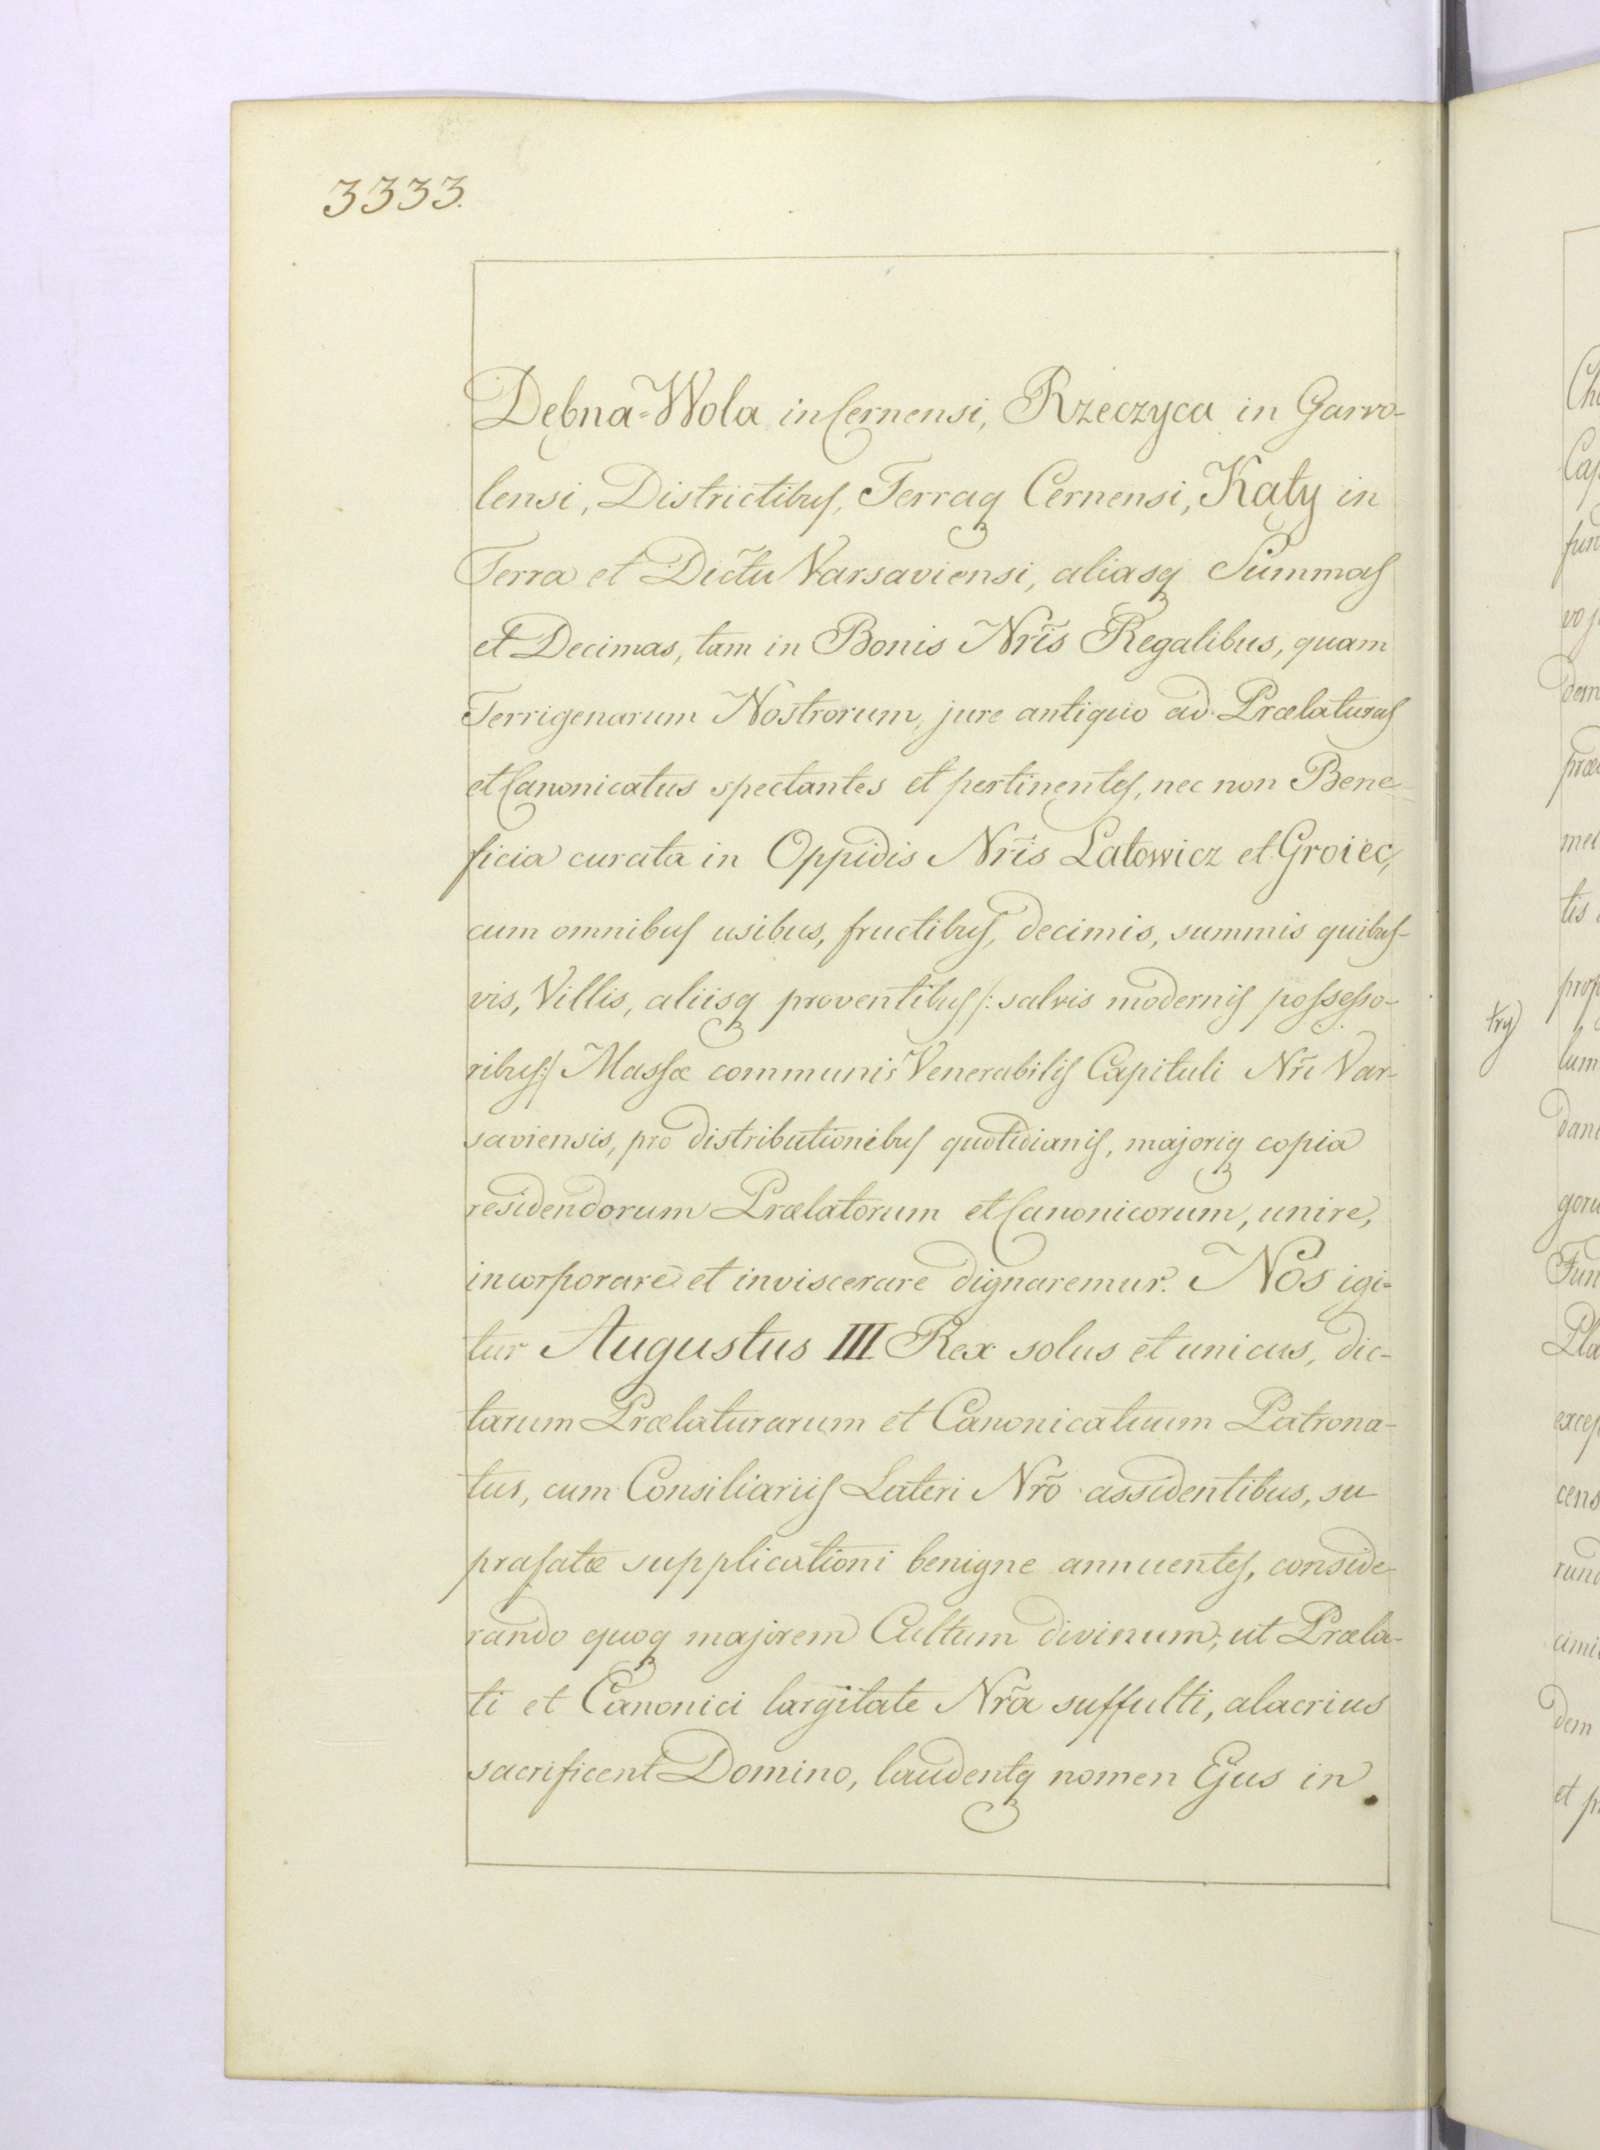 3333.
Dębna-Wola in Cernensi, Rzeczyca in Garvo-
lensi, Districtibus, Terraq Cernensi, Kąty in
Terra et Dictu Varsaviensi, aliasq Summas
et Decimas, tam in Bonis Nris Regalibus, quam
Terrigenarum Nostrorum, jure antiquo ad Prælaturas
et Canonicatus spectantes et pertinentes, nec non Bene-
ficia curata in Oppidis Nris Latowicz et Groiec,
cum omnibus usibus, fructibus, decimis, summis quibus-
vis, Villis, aliisq proventibus /: salvis modernis possesso-
ribus :/ Massæ communis Venerabilis Capituli Nri Var-
saviensis, pro distributionibus quotidianis, majoriq copia
residendorum Prælatorum et Canonicorum, unire,
incorporare et inviscerare dignaremur. Nos igi-
tur Augustus III Rex solus et unicus, dic-
tarum Prælaturarum et Canonicatuum Patrona-
tus, cum Consiliariis Lateri Nro assidentibus, su
prafatæ supplicationi benigne annuentes, conside-
rando quoq majorem Cultum divinum, ut Præla-
ti et Canonici largitate Nra suffulti, alacrius
sacrificent Domino, laudentq nomen Ejus in
try